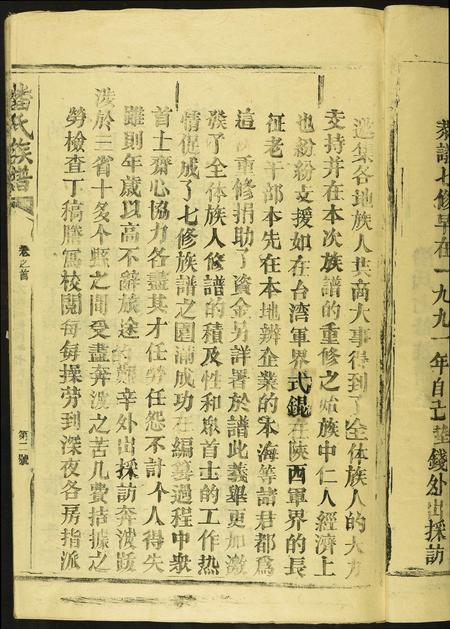 恭譜七修早在一九九一年自己墊錢外出採訪
邀集各地族人共商大事得到了全体族人的大力
支持并在本次族譜的重修之始族中仁人經濟上
也紛紛支援如在台湾軍界式錕在陝西軍界的長
征老干部本先在本地辨企業的本海等諸君都為
這次重修捐助了資金另詳署於譜此義舉更加激
發了全体族人修譜的積及性和眾首士的工作热
情促成了七修族譜之圆滿成功在編纂過程中衆
首士齊心協力各盡其才任勞任怨不計个人得失
雖則年歲以高不辭旅途的艱辛外出採訪奔波跋
涉於三省十多个縣之間受盡奔波之苦几費拮據之
勞檢查丁稿謄寫校閱每每操劳到深夜各房指派
潘氏族譜
卷之首
第二號